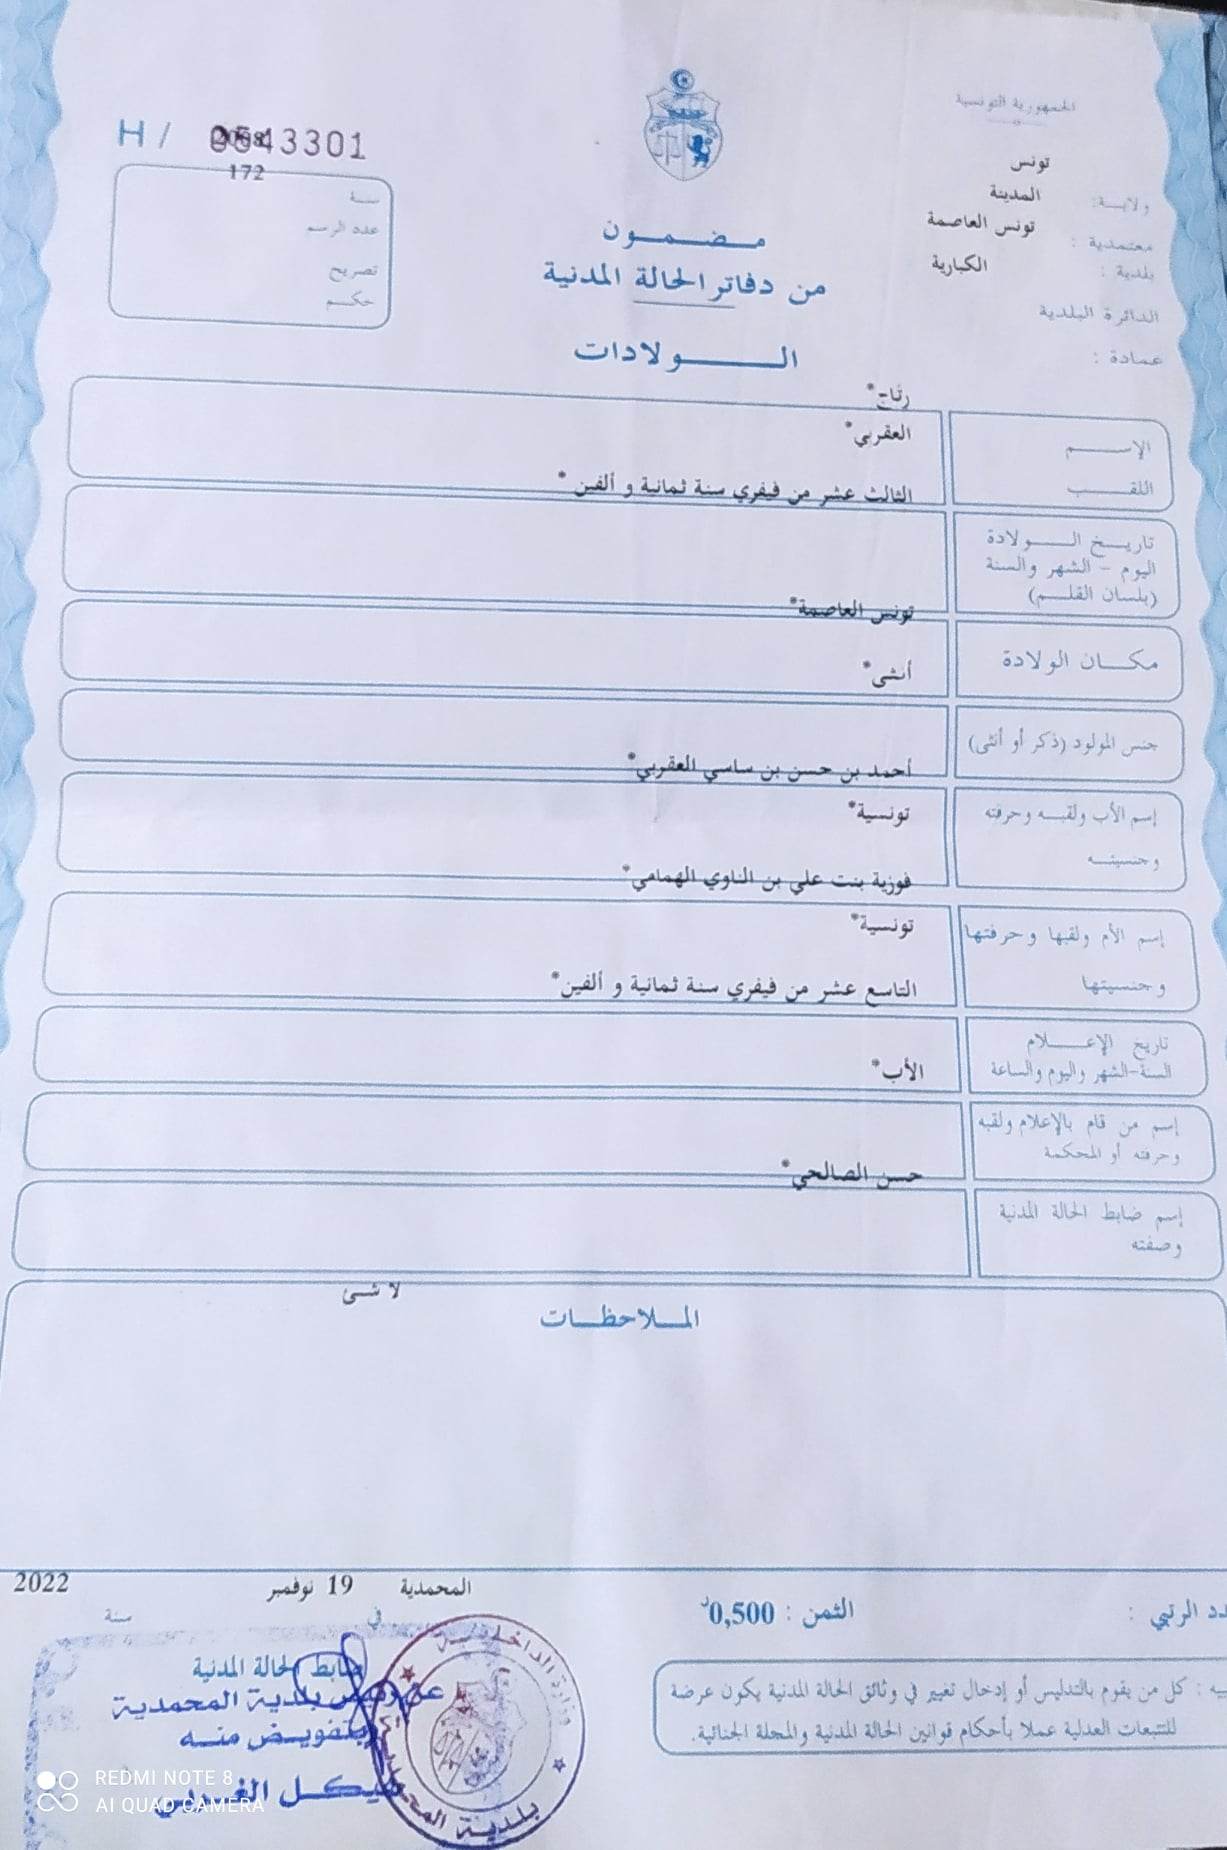 الجمهورية التونسية
تونس
ولاية:
المدينة
معتمدية :
تونس العاصمة
بلدية :
الكبارية
الدائرة البلدية
عمادة :
H / 0543301
2008
172
سنة
عدد الرسم
تصريح
حكم
مضمون
من دفاتر الحالة المدنية
الولادات
رتاج*
الإسم
العقربي*
اللقب
الثالث عشر من فيفري سنة ثمانية و ألفين *
تاريخ الولادة
اليوم - الشهر والسنة
(بلسان القلم)
تونس العاصمة*
مكان الولادة
أنثى*
جنس المولود (ذكر أو أنثى)
أحمد بن حسن بن ساسي العقربي*
إسم الأب ولقبه وحرفته
تونسية*
وجنسيته
فوزية بنت علي بن الناوي الهمامي*
إسم الأم ولقبها وحرفتها
تونسية*
وجنسيتها
التاسع عشر من فيفري سنة ثمانية و ألفين*
تاريخ الإعلام
السنة-الشهر واليوم والساعة
الأب*
إسم من قام بالإعلام ولقبه
وحرفته أو المحكمة
حسن الصالحي*
إسم ضابط الحالة المدنية
وصفته
لا شئ
الملاحظات
المحمدية 19 نوفمبر 2022
في سنة
الثمن : 0,500د
الرتبي :
ضابط الحالة المدنية
عن رئيس بلدية المحمدية
بتفويض منه
هيكل الغربي
وزارة الداخلية
بلدية المحمدية
: كل من يقوم بالتدليس أو إدخال تغيير في وثائق الحالة المدنية يكون عرضة
للتتبعات العدلية عملا بأحكام قوانين الحالة المدنية والمجلة الجنائية.
REDMI NOTE 8
AI QUAD CAMERA